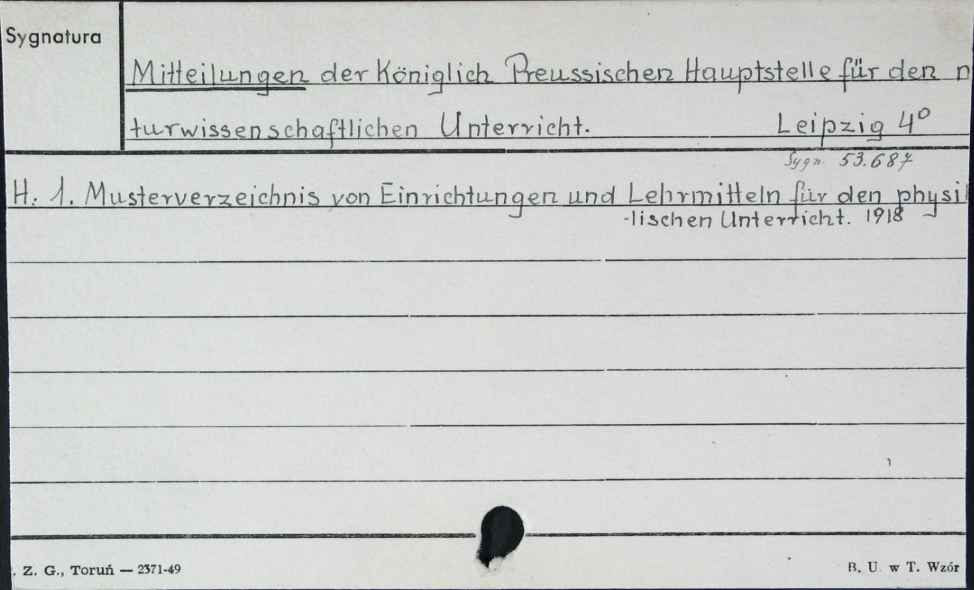 Sygnatura
Mitteilungen der Königlich Preussischen Hauptstelle für den n
turwissenschaftlichen Unterricht. Leipzig 4°
Sygn. 53.687
H. 1. Musterverzeichnis von Einrichtungen und Lehrmitteln für den physi
-lischen Unterricht. 1918
. Z. G., Toruń — 2371-49
B. U. w T. Wzór